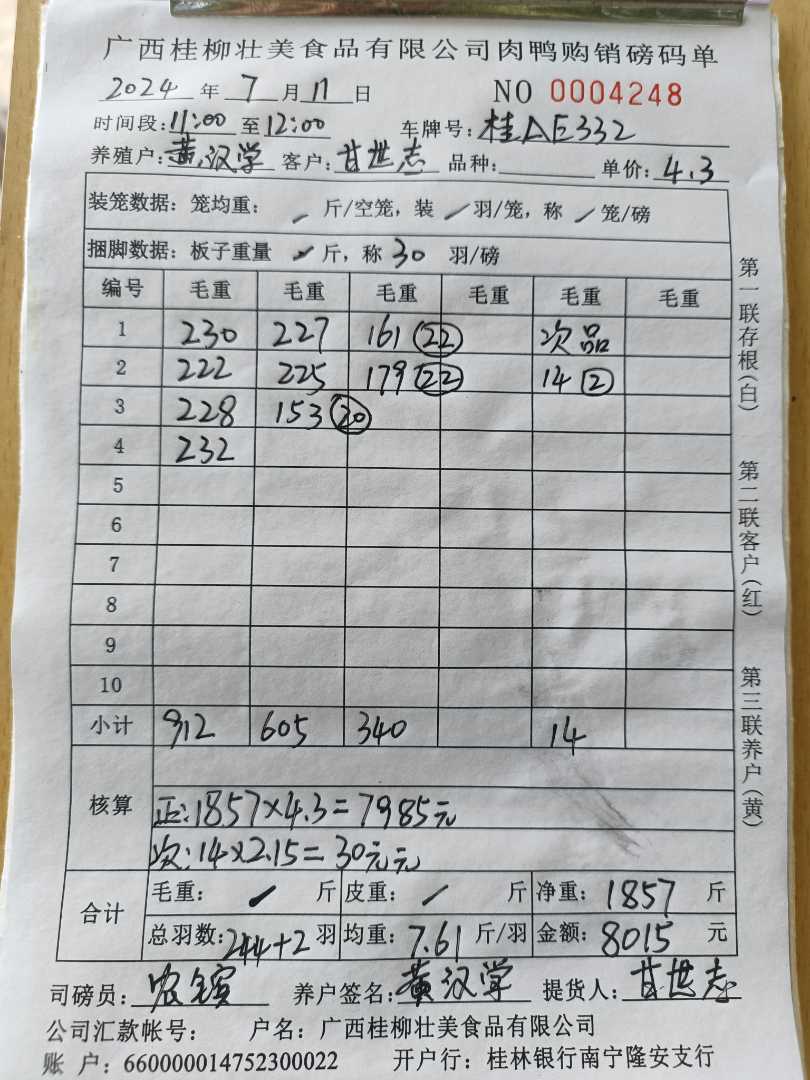 广西桂柳壮美食品有限公司肉鸭购销磅码单
2024 年 7 月 11 日 NO 0004248
时间段: 11:00 至 12:00 车牌号: 桂AE332
养殖户: 黄汉学 客户: 甘世志 品种: 单价: 4.3
装笼数据: 笼均重: / 斤/空笼, 装 / 羽/笼, 称 / 笼/磅
捆脚数据: 板子重量 / 斤, 称 30 羽/磅
编号 毛重 毛重 毛重 毛重 毛重 毛重
1 230 227 161 (22) 次品
2 222 225 179 (22) 14 (2)
3 228 153 (20)
4 232
5
6
7
8
9
10
小计 912 605 340 14
核算
正: 1857×4.3=7985元
次: 14×2.15=30元元
合计 毛重: / 斤 皮重: / 斤 净重: 1857 斤
总羽数: 244+2 羽 均重: 7.61 斤/羽 金额: 8015 元
司磅员: 养户签名: 黄汉学 提货人: 甘世志
公司汇款帐号: 户名: 广西桂柳壮美食品有限公司
账 户: 660000014752300022 开户行: 桂林银行南宁隆安支行
第一联存根(白)
第二联客户(红)
第三联养户(黄)